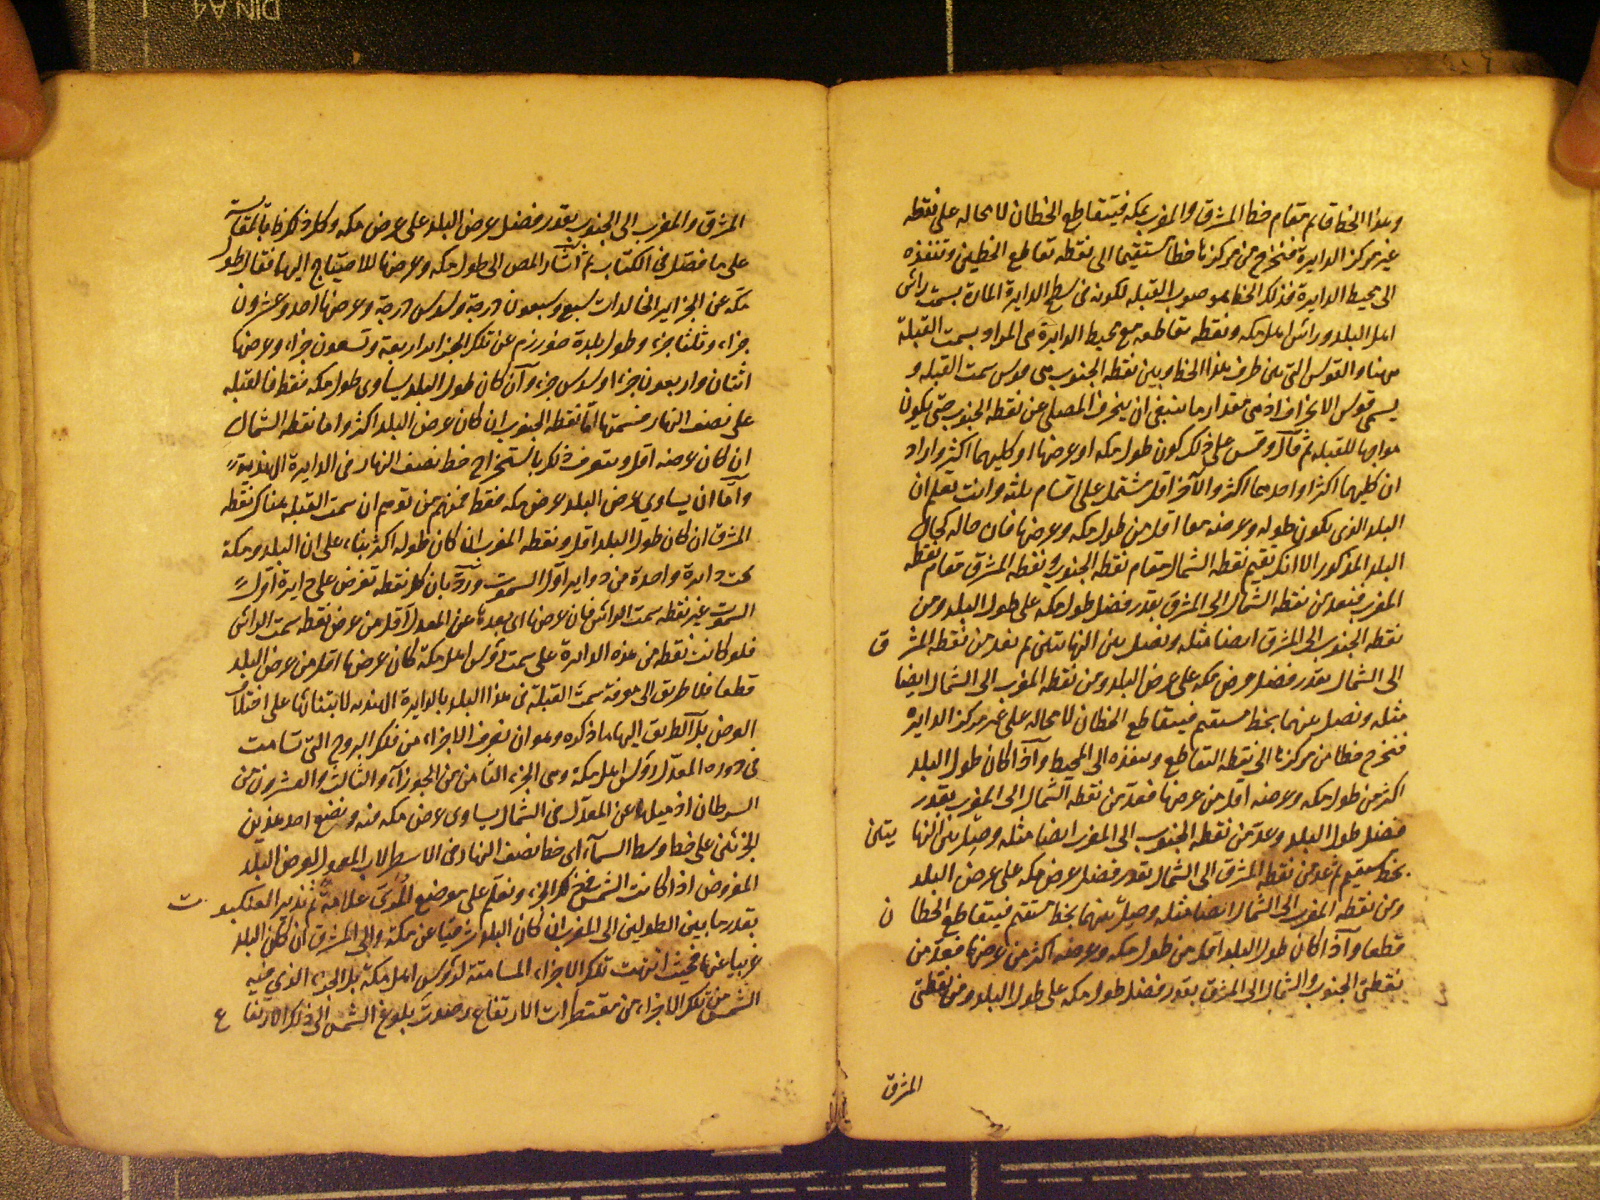 وهذا الخط قائم مقام خط المشرق والمغرب بمكة فيتقاطع الخطان لا محالة على نقطة
غير مركز الدايرة فنخرج من مركزها خطا مستقيما الى نقطة تقاطع الخطين وننفذه
الى محيط الدايرة فذلك الخط هو صوب القبلة لكونه فى سطح الدايرة المارة بسمت رأس
اهل البلد ورأس اهل مكة ونقطة تقاطعه مع محيط الدايرة هى المراد بسمت القبلة
ههنا والقوس التى بين طرف هذا الخط وبين نقطة الجنوب هى قوس سمت القبلة و
يسمى قوس الانحراف اذ هى مقدار ما ينبغى ان ينحرف المصلى عن نقطة الجنوب حتى يكون
مواجها للقبلة ثم قال وقس على ذلك كون طول مكة او عرضها او كليهما اكثر واراد
ان كليهما اكثر او احدهما اكثر والآخر اقل يشتمل على اقسام ثلثة وانت تعلم ان
البلد الذى يكون طوله وعرضه معا اقل من طول مكة وعرضها فان حاله كحال
البلد المذكور الا انك تقيم نقطة الشمال مقام نقطة الجنوب ونقطة المشرق مقام نقطة
المغرب فتعد من نقطة الشمال الى المشرق بقدر فضل طول مكة على طول البلد ومن
نقطة الجنوب الى المشرق ايضا مثله وتصل بين النهايتين ثم تعد من نقطة المشرق
الى الشمال بقدر فضل عرض مكة على عرض البلد ومن نقطة المغرب الى الشمال ايضا
مثله وتصل بينهما بخط مستقيم فيتقاطع الخطان لا محالة على غير مركز الدايرة
فتخرج خطا من مركزها الى نقطة التقاطع وتنفذه الى المحيط واذا كان طول البلد
اكثر من طول مكة وعرضه اقل من عرضها فعد من نقطة الشمال الى المغرب بقدر
فضل طول البلد وعد من نقطة الجنوب الى المغرب ايضا مثله وصل بين النهايتين
بخط مستقيم ثم عد من نقطة المشرق الى الشمال بقدر فضل عرض مكة على عرض البلد
ومن نقطة المغرب الى الشمال ايضا مثله وصل بينهما بخط مستقيم فيتقاطع الخطان
قطعا واذا كان طول البلد اقل من طول مكة وعرضه اكثر من عرضها فعد من
نقطتى الجنوب والشمال الى المشرق بقدر فضل طول مكة على طول البلد ومن نقطتى
المشرق
المشرق والمغرب الى الجنوب بقدر فضل عرض البلد على عرض مكة وكل ذلك ظ بالمقايسة
على ما فصل فى الكتاب ثم اشار المص الى طول مكة وعرضها للاحتياج اليها فقال طول
مكة عن الجزاير الخالدات سبع وسبعون درجة وسدس درجة وعرضها احد وعشرون
جزاء وثلثا جزء وطول بلدة خوارزم عن تلك الجزاير اربعة وتسعون جزاء وعرضها
اثنتان واربعون جزءا وسدس جزء وآن كان طول البلد يساوى طول مكة فقط فالقبلة
على نصف النهار فسمتها اما نقطة الجنوب ان كان عرض البلد اكثر واما نقطة الشمال
ان كان عرضه اقل ويتعرف ذلك باستخراج خط نصف النهار فى الدايرة الهندية
وآما ان يساوى عرض البلد عرض مكة فقط فمنهم من توهم ان سمت القبلة هناك نقطة
المشرق ان كان طول البلد اقل ونقطة المغرب ان كان طوله اكثر بناء على ان البلد ومكة
تحت دايرة واحدة من دواير اول السموت ورد بان كل نقطة تفرض على دايرة اول
السموت غير نقطة سمت الرأس فان عرضها اى بعدها عن المعدل اقل من عرض نقطة سمت الرأس
فلو كانت نقطة من هذه الدايرة على سمت رؤس اهل مكة كان عرضها اقل من عرض البلد
قطعا فلا طريق الى معرفة سمت القبلة فى هذا البلد بالدايرة الهندية لابتنائها على اختلاف
العرض بل الطريق اليها ما ذكره وهو ان يعرف الاجزاء من فلك البروج التى تسامت
فى دوره المعدل رؤس اهل مكة وهى الجزء الثامن من الجوزاء والثالث والعشرون من
السرطان اذ ميلها عن المعدل فى الشمال يساوى عرض مكة فنه وتضع احد هذين
الجزئين على خط وسط السماء اى خط نصف النهار فى الاسطرلاب المعمول لعرض البلد
المفروض اذا كانت الشمس فى ذلك الجزء وتعلم على موضع المرى علامة ثم تدير العنكبوت
بقدر ما بين الطولين الى المغرب ان كان البلد شرقيا عن مكة والى المشرق ان كان البلد
غربيا عنها فحيث انتهت تلك الاجزاء المسامتة لرؤس اهل مكة بل الجزء الذى فيه
الشمس من تلك الاجزاء من مقنطرات الارتفاع رصدت بلوغ الشمس الى ذلك الارتفاع